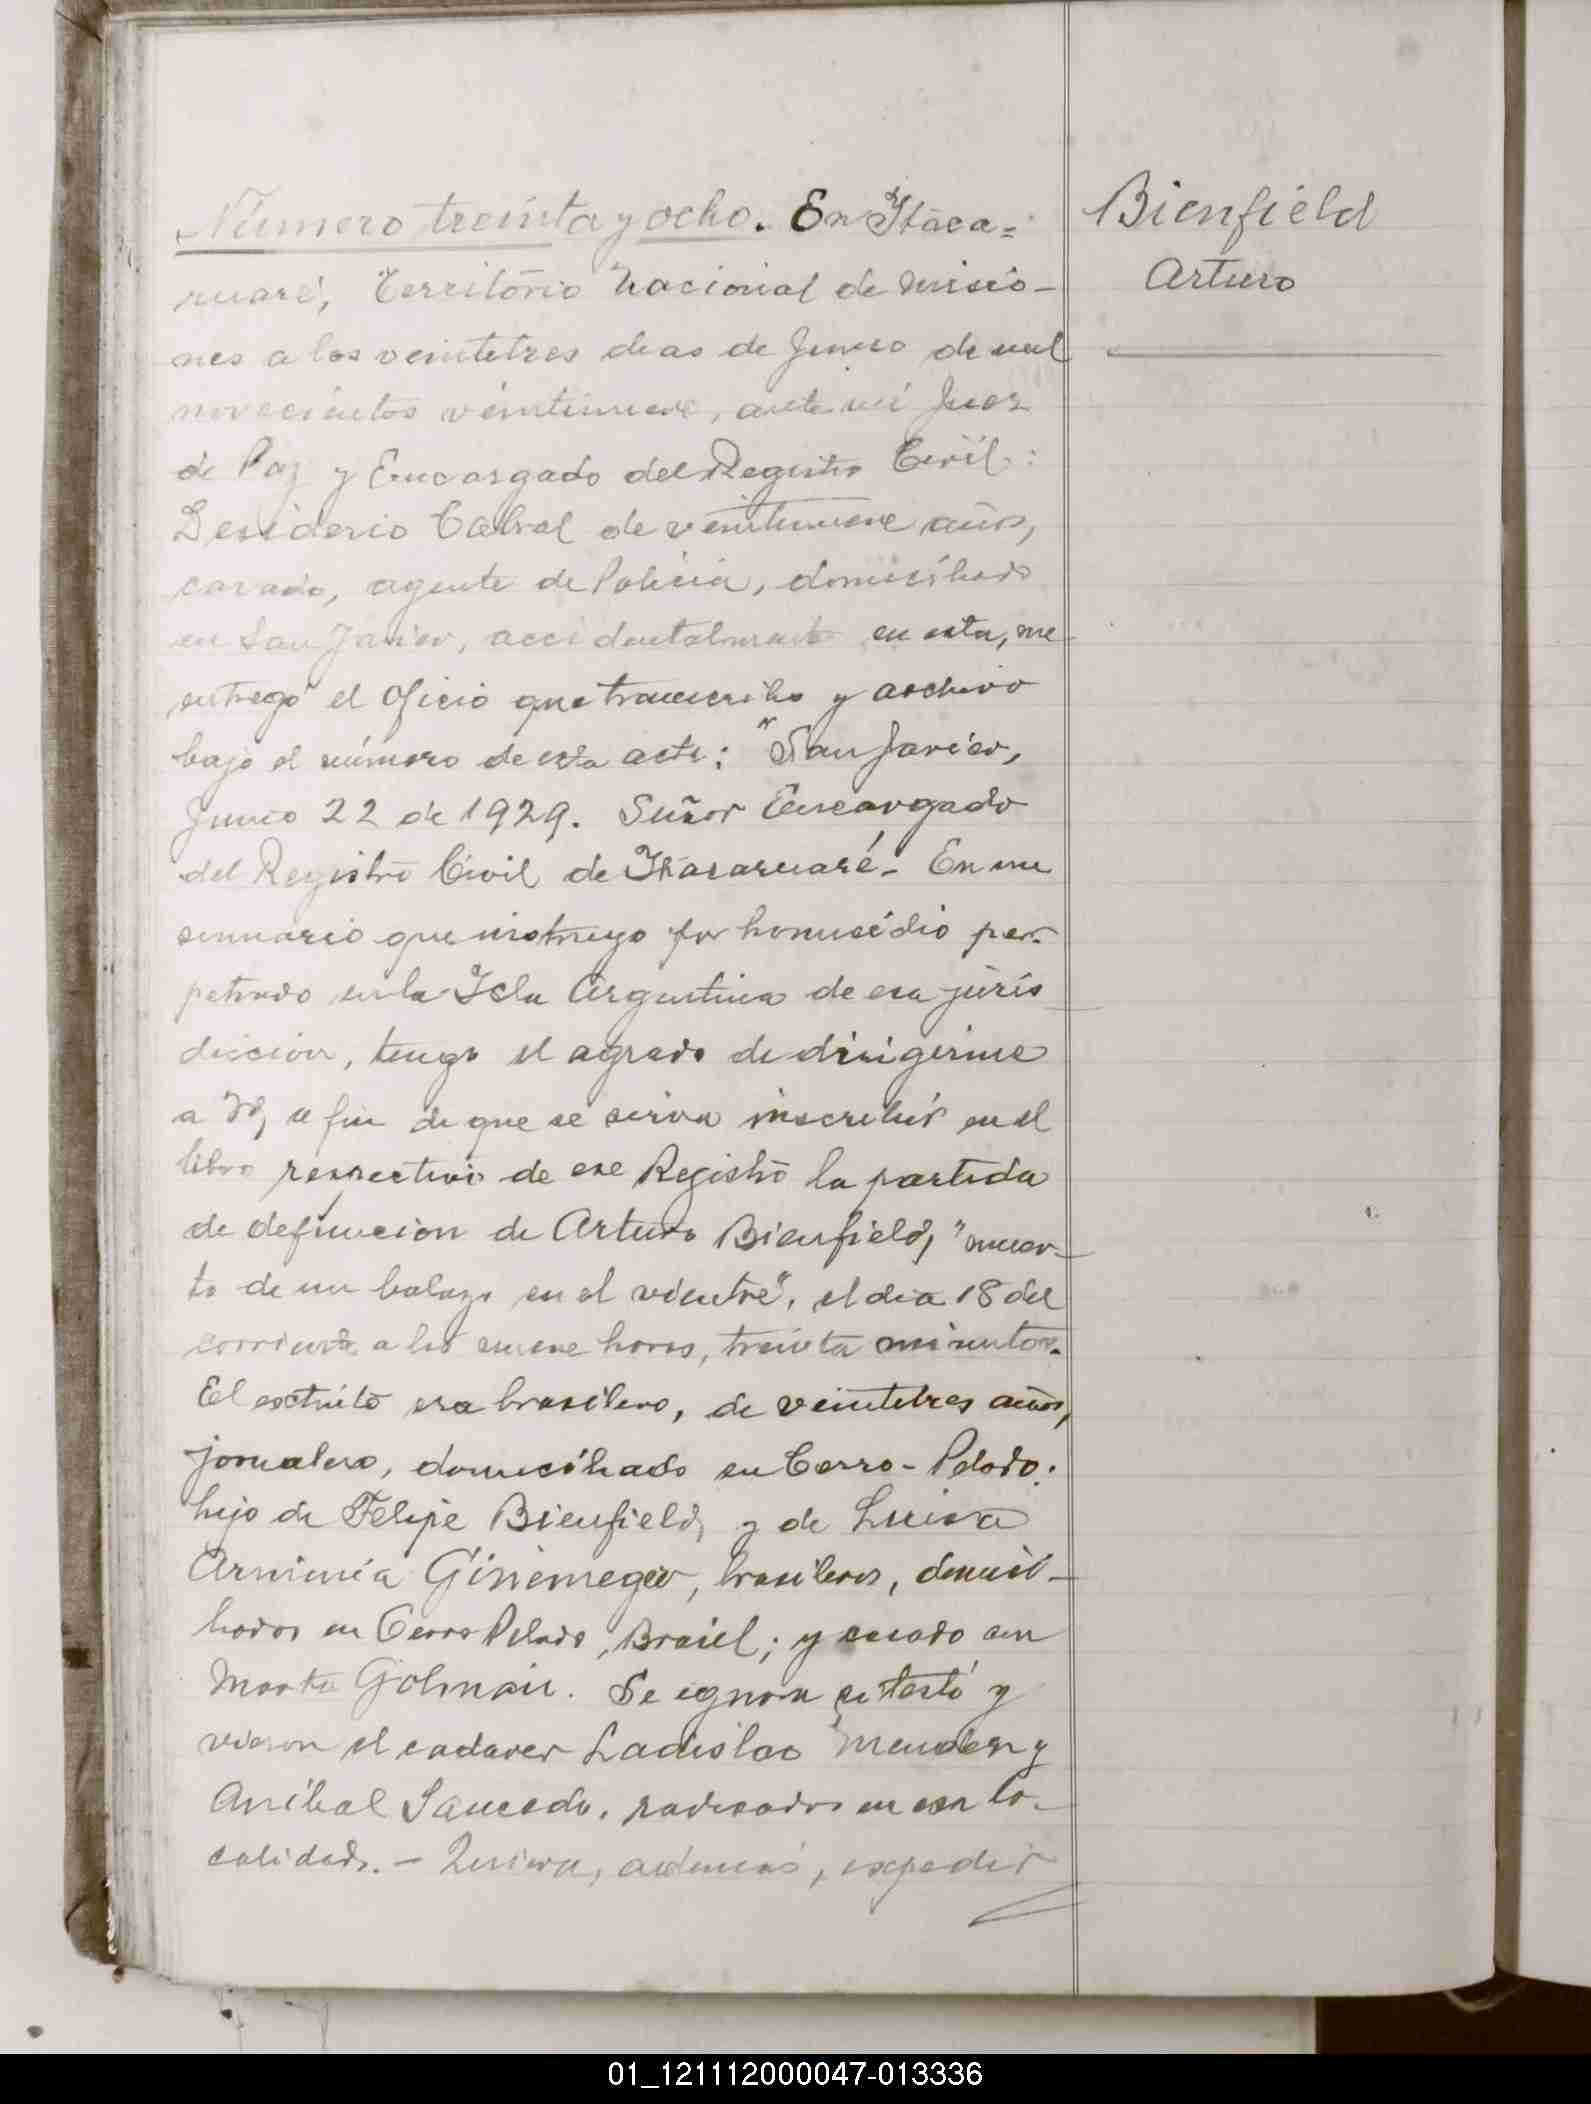 Número treinta y ocho. En Itaca=
ruaré, Territorio Nacional de Misio-
nes a los veintetres dias de Junio de mil
novecientos veintinueve, ante mi Juez
de Paz y Encargado del Registro Civil:
Desiderio Cabral de veintinueve años,
casado, agente de Policia, domiciliado
en San Javier, accidentalmente en esta, me
entregó el oficio que transcribo y archivo
bajo el número de esta acta: "San Javier,
Junio 22 de 1929. Señor Encargado
del Registro Civil de Itacaruaré. En un
sumario que instruyo por homicidio per-
petrado en la Isla Argentina de esa juris
dicción, tengo el agrado de dirigirme
a Vd, a fin de que se sirva inscribir en el
libro respectivo de ese Registro la partida
de defuncion de Arturo Bienfield, "muer-
to de un balazo en el vientre", el dia 18 del
corriente a las nueve horas, treinta minutos.
El extinto era brasilero, de veintetres años,
jornalero, domiciliado en Cerro-Pelado;
hijo de Felipe Bienfield, y de Luisa
Arminia Ginemeger, brasileros, domici-
liados en Cerro Pelado, Brasil; y casado con
Marta Golman. Se ignora si testó y
vieron el cadaver Ladislao Mendez y
Anibal Saucedo, radicados en esa lo-
calidad. - Quiera, además, expedir
Bienfield
Arturo
01_121112000047-013336